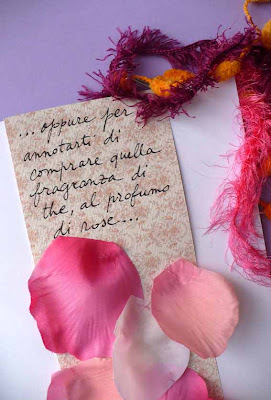 ...oppure per
annotarti di
comprare quella
fragranza di
the, al profumo
di rose...